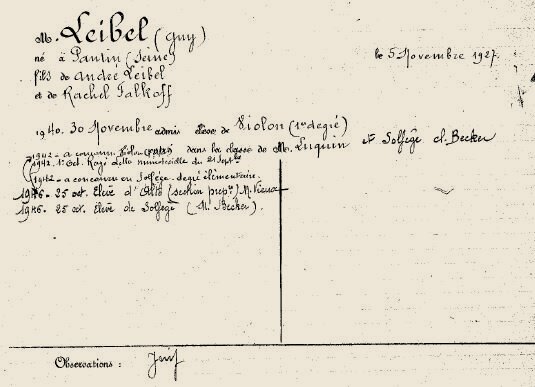 M. Leibel (Guy)
né à Pantin (Seine) le 5 Novembre 1927.
fils de André Leibel
et de Rachel Falkoff
1940. 30 Novembre admis élève de Violon (1er degré)
dans la classe de M. Luquin et Solfège cl. Becker
1942 - a concouru Violon
1942. 1er Oct. Rayé lettre ministérielle du 21 Septbre
1942 - a concouru en Solfège. degré élémentaire.
1946 - 25 oct. Élève d'Alto (section prépre) M. Vieux
1946 - 25 oct. Élève de Solfège (M. Becker).
Observations : Juif